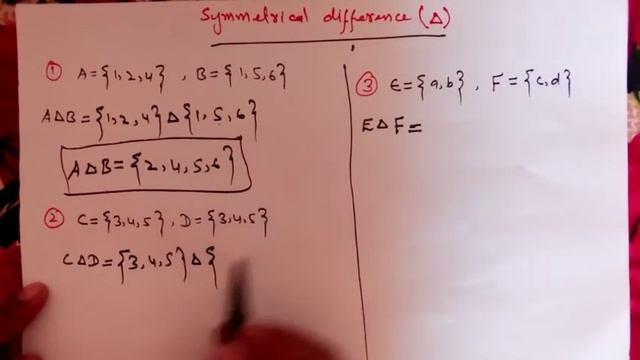 Symmetrical difference (Δ)
① A = {1, 2, 4} , B = {1, 5, 6}
A Δ B = {1, 2, 4} Δ {1, 5, 6}
A Δ B = {2, 4, 5, 6}
② C = {3, 4, 5} , D = {3, 4, 5}
C Δ D = {3, 4, 5} Δ {
③ E = {a, b} , F = {c, d}
E Δ F =